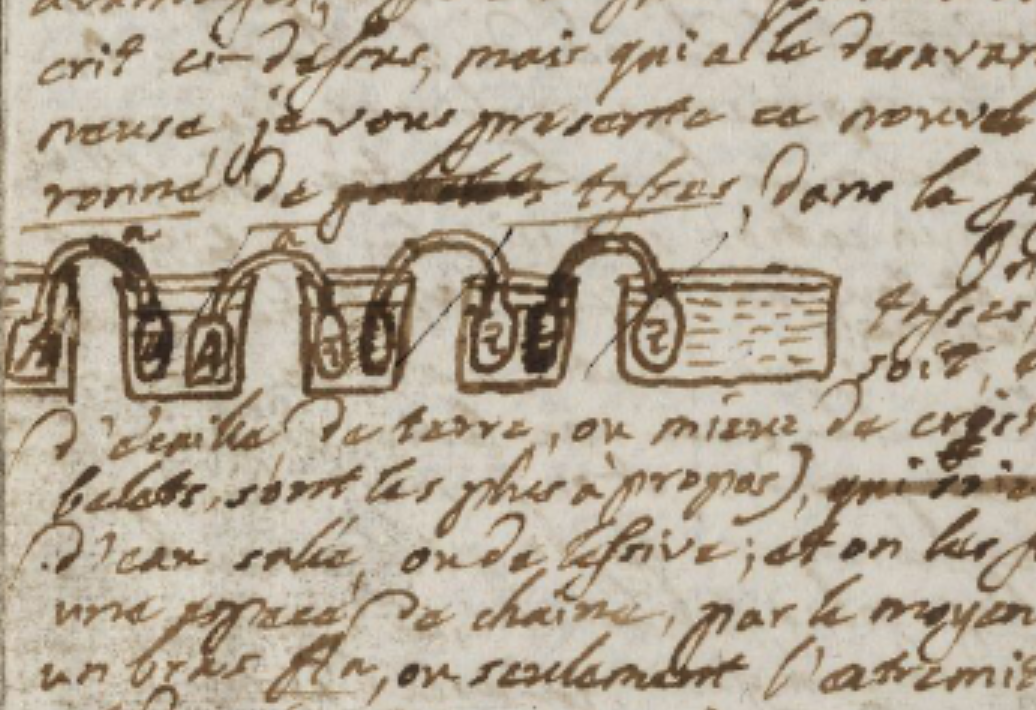 crit ci-dessus, mais qui a le desavan
neuse, je vous presente ce nouve
ronné de tasses, dans la
a a
A A A Z Z Z
tasses
soit,
d'écuille de terre, ou mieux de cris
belets, sont les plus à propos), qui
d'eau salée, ou de lessive; et on les
une espece de chaîne, par le moyen
un bras Aa, ou seulement l'